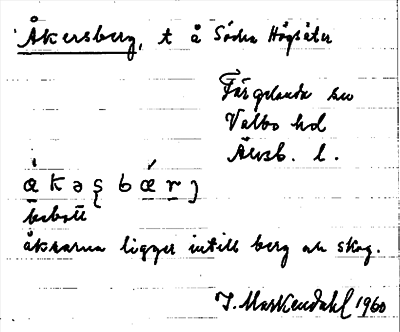 Åkersberg, t å Södra Högsäter
Färgelanda sn
Valbo hd
Älvsb. l.
bebott
åkrarna ligger intill berg och skog.
J. Markendahl 1960